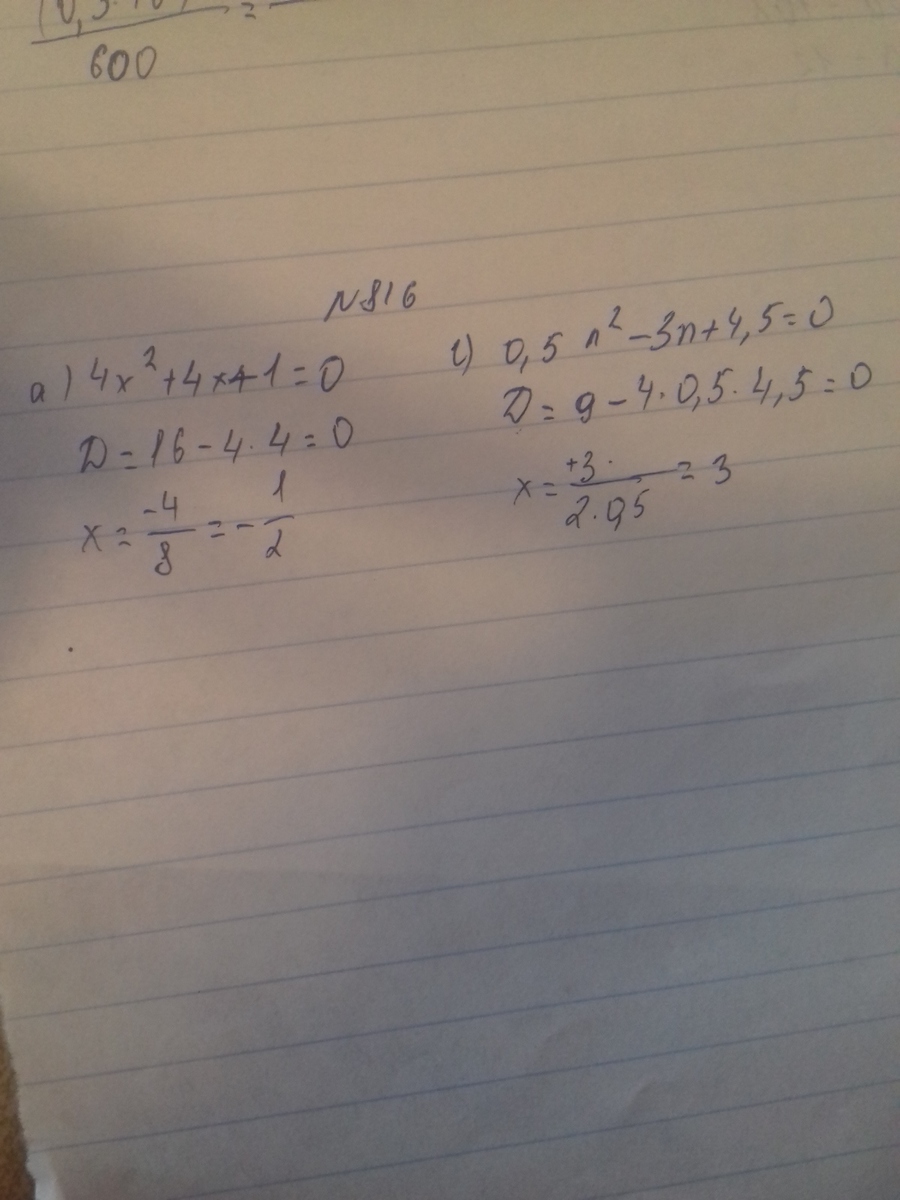 600
N816
а) 4x²+4x+1=0
D=16-4·4=0
x = -4/8 = -1/2
с) 0,5 n²-3n+4,5=0
D=9-4·0,5·4,5=0
x = +3/2·0,5 = 3